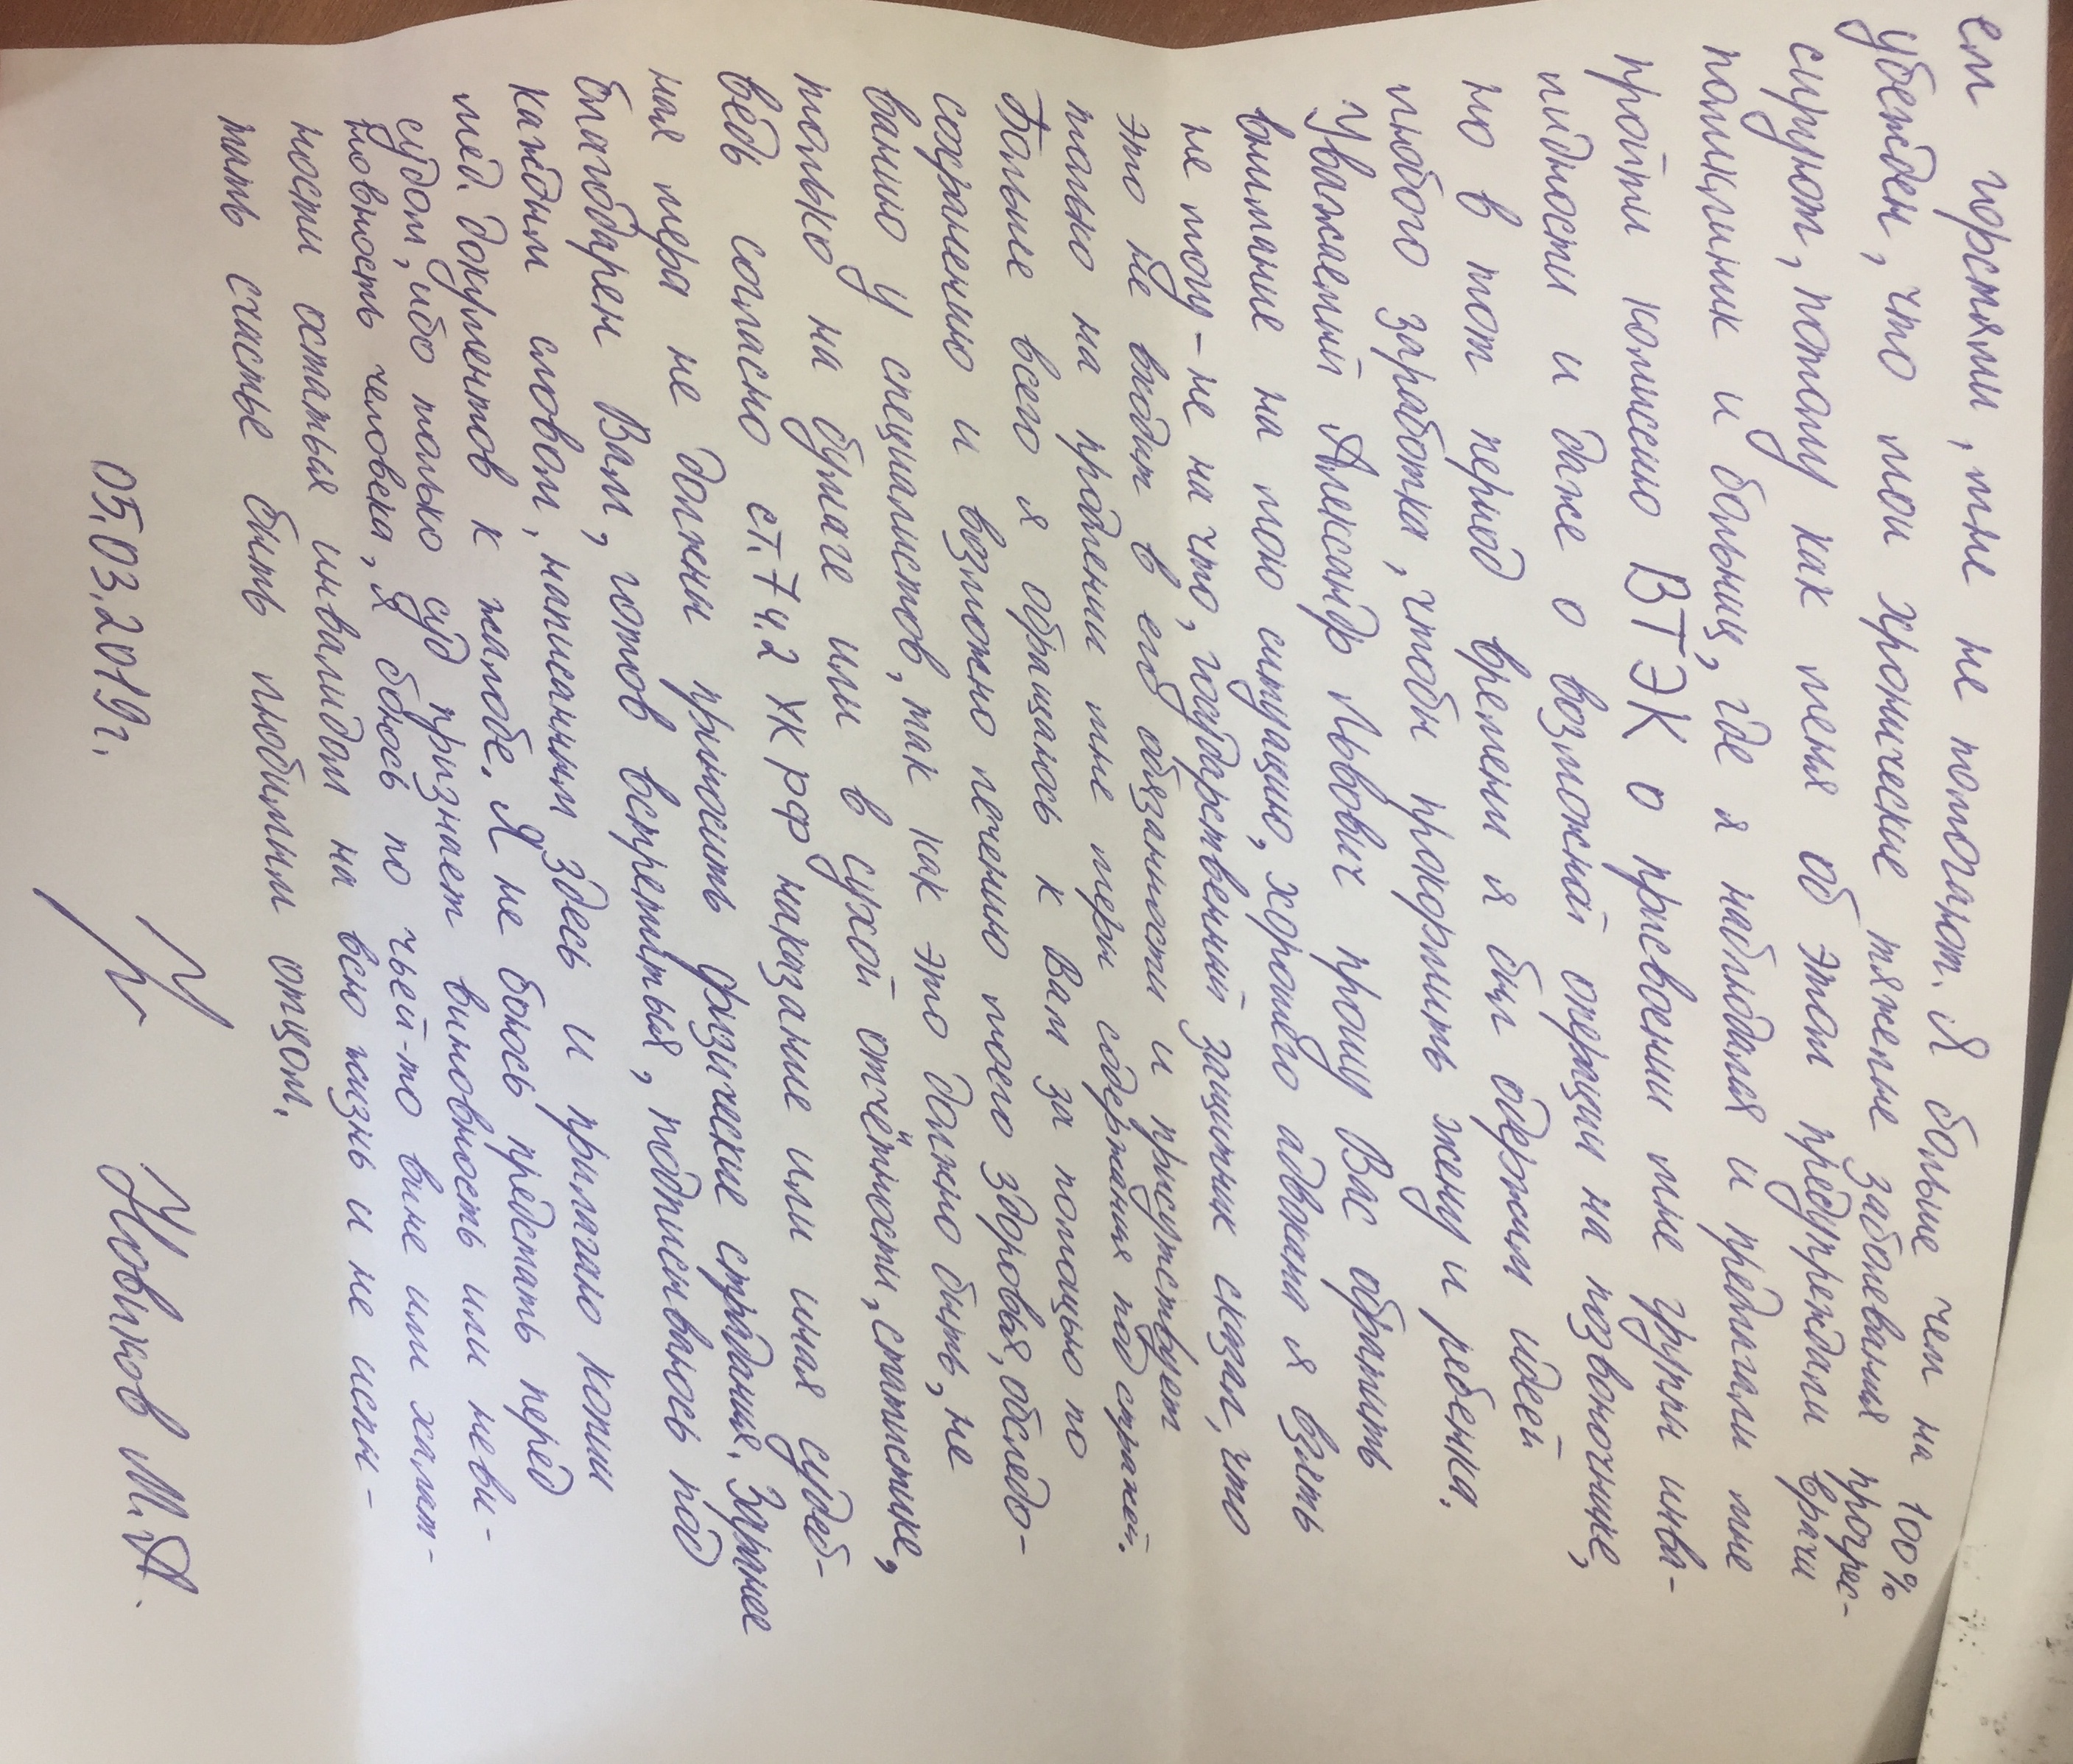 ем горстями, мне не помогают. Я больше чем на 100%
убежден, что мои хронические тяжелые заболевания прогрес-
сируют, потому как меня об этом предупреждали врачи
поликлиник и больниц, где я наблюдался и предлагали мне
пройти комиссию ВТЭК о присвоении мне группы инва-
лидности и даже о возможной операции на позвоночнике,
но в тот период времени я был одержим идеей
любого заработка, чтобы прокормить жену и ребенка.
Уважаемый Александр Львович прошу Вас обратить
внимание на мою ситуацию, хорошего адвоката я взять
не могу - не на что, государственный защитник сказал, что
это не входит в его обязанности и присутствует
только на продлении мне меры содержания под стражей.
Больше всего я обращаюсь к Вам за помощью по
сохранению и возможно лечению моего здоровья, обследо-
ванию у специалистов, так как это должно быть, не
только на бумаге или в сухой отчётности, статистике,
ведь согласно ст. 7 ч. 2 УК РФ наказание или иная судеб-
ная мера не должны приносить физические страдания. Заранее
благодарен Вам, готов встретиться, подписываюсь под
каждым словом, написанным здесь и прилагаю копии
мед. документов к жалобе. Я не боюсь предстать перед
судом, ибо только суд признает виновность или неви-
новность человека, я боюсь по чьей-то вине или халат-
ности остаться инвалидом на всю жизнь и не испы-
тать счастье быть любимым отцом.
05.03.2019г. Новиков М.А.